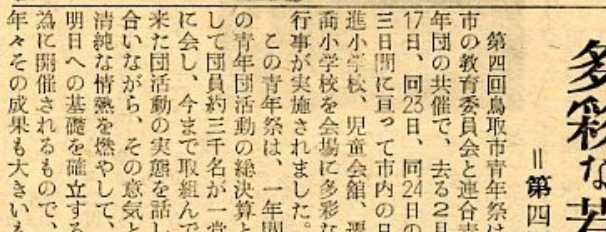 多彩な若
=第四
第四回鳥取市青年祭は
市の教育委員会と連合青
年団の共催で、去る2月
17日、同23日、同24日の
三日間に亘って市内の日
進小学校、児童会館、遷
喬小学校を会場に多彩な
行事が実施されました。
この青年祭は、一年間
の青年団活動の総決算と
して団員約三千名が一堂
に会し、今まで取組んで
来た団活動の実態を話し
合いながら、その意気と
清純な情熱を燃やして、
明日への基礎を確立する
為に開催されるもので、
年々その成果も大きいも